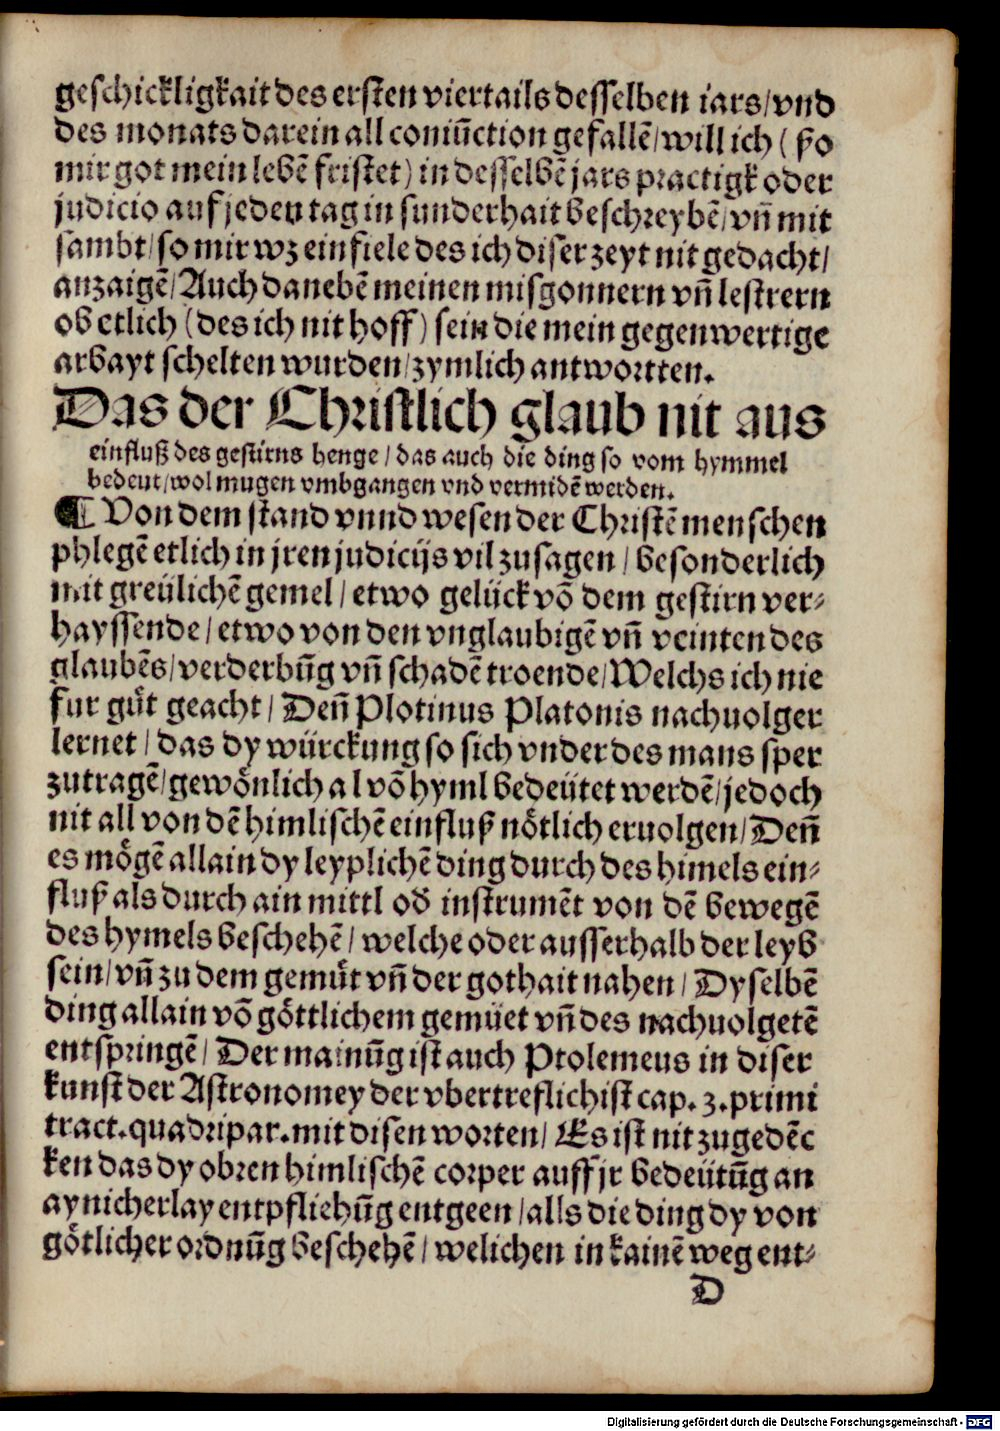 geschickligkait des ersten viertails desselben iars/vnd
des monats darein all coniūction gefallē/will ich ( ßo
mir got mein lebē fristet) in desselbē jars practigk oder
judicio auf jeden tag in sunderhait beschreybē/vn̄ mit
sambt/so mir wz einfiele des ich diser zeyt nit gedacht/
anzaigē/Auch danebē meinen misgonnern vn̄ lestrern
ob etlich (des ich nit hoff) sein die mein gegenwertige
arbayt schelten wurden/zymlich antwortten.
Das der Christlich glaub nit aus
einfluß des gestirns henge/das auch die ding so vom hymmel
bedeut/wol mugen vmbgangen vnd vermidē werden.
¶ Von dem stand vnnd wesen der Christē menschen
phlegē etlich in jren judicijs vil zusagen/besonderlich
mit greülichē gemel/etwo gelück vō dem gestirn ver⸗
hayssende/etwo von den vnglaubigē vn̄ veinten des
glaubēs/verderbūg vn̄ schadē troende/Welchs ich nie
fur gůt geacht/Den̄ Plotinus Platonis nachuolger
lernet/das dy würckung so sich vnder des mans sper
zutragē/gewönlich al vō hyml bedeütet werdē/jedoch
nit all von dē himlischē einfluß nötlich eruolgen/Den̄
es mögē allain dy leyplichē ding durch des himels ein⸗
fluß als durch ain mittl od̄ instrumēt von dē bewegē
des hymels beschehē/welche oder ausserhalb der leyb
sein/vn̄ zu dem gemůt vn̄ der gothait nahen/Dyselbē
ding allain vō göttlichem gemüet vn̄ des nachuolgetē
entspringē/Der mainūg ist auch Ptolemeus in diser
kunst der Astronomey der vbertreflichist cap. 3. primi
tract. quadripar. mit disen worten/Es ist nit zugedēc
ken das dy obren himlischē corper auff jr bedeütūg an
aynicherlay entpfliehūg entgeen/alls die ding dy von
götlicher ordnūg beschehē/welichen in kainē weg ent⸗
D
Digitalisierung gefördert durch die Deutsche Forschungsgemeinschaft - DFG